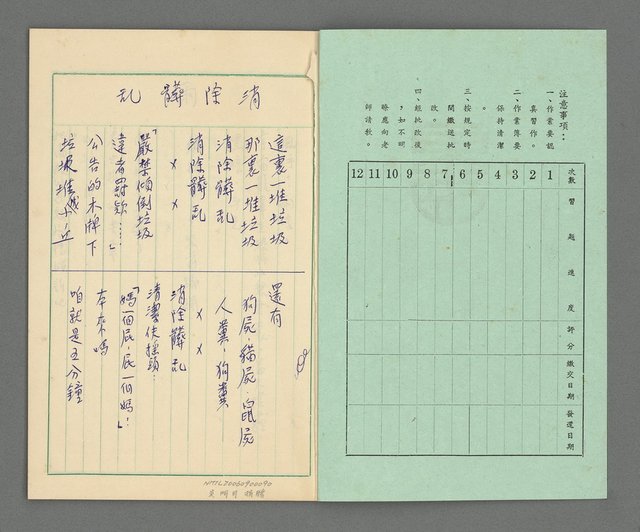 注意事項：
一、作業要認
真習作。
二、作業簿要
保持清潔
。
三、按規定時
間繳送批
改。
四、經批改後
，如不明
瞭應向老
師請教。
次數 習題進度 評分 繳交日期 發還日期
1
2
3
4
5
6
7
8
9
10
11
12
消除髒乱
這裏一堆垃圾
那裏一堆垃圾
消除髒乱
消除髒乱
x x
「嚴禁傾倒垃圾
違者罰款……」
公告的木牌下
垃圾堆成小丘
還有
狗屍，貓屍，鼠屍
人糞，狗糞
x x
消除髒乱
清潔伕搖頭：
「媽一個屁，屁一個媽！」
本來嗎
咱就是五分鐘
NMTL20060900090